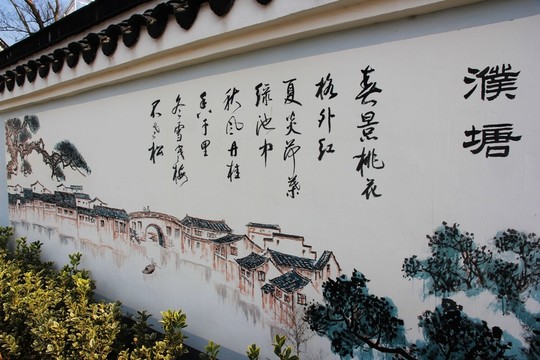 濮塘
春景桃花
格外红
夏炎荷叶
绿池中
秋风丹桂
香千里
冬雪寒梅
不老松